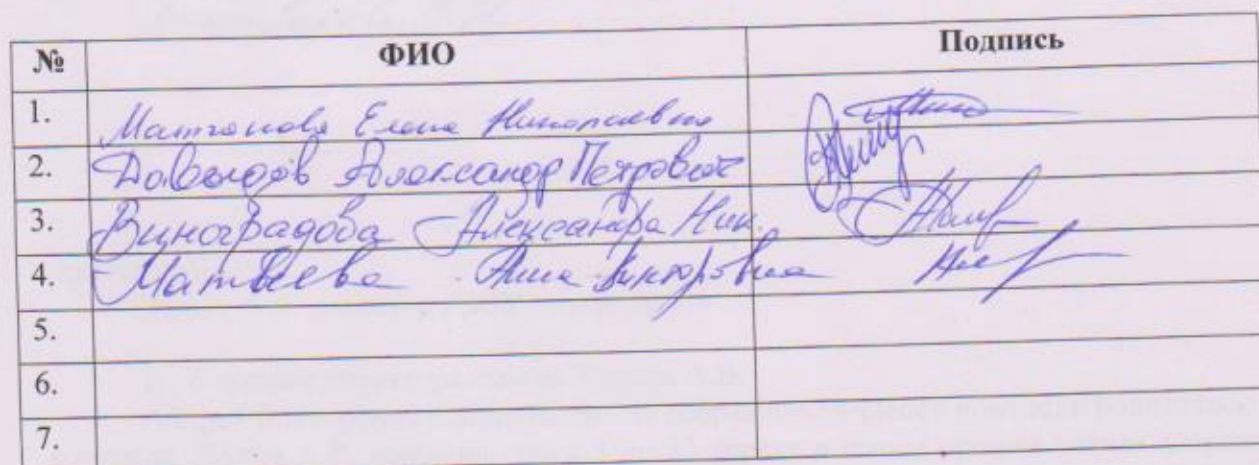 № ФИО Подпись
1. Елена Николаевна
2. Давыдов Александр Петрович
3. Виноградова Александра Ник.
4. Матвеева Анна Викторовна
5.
6.
7.